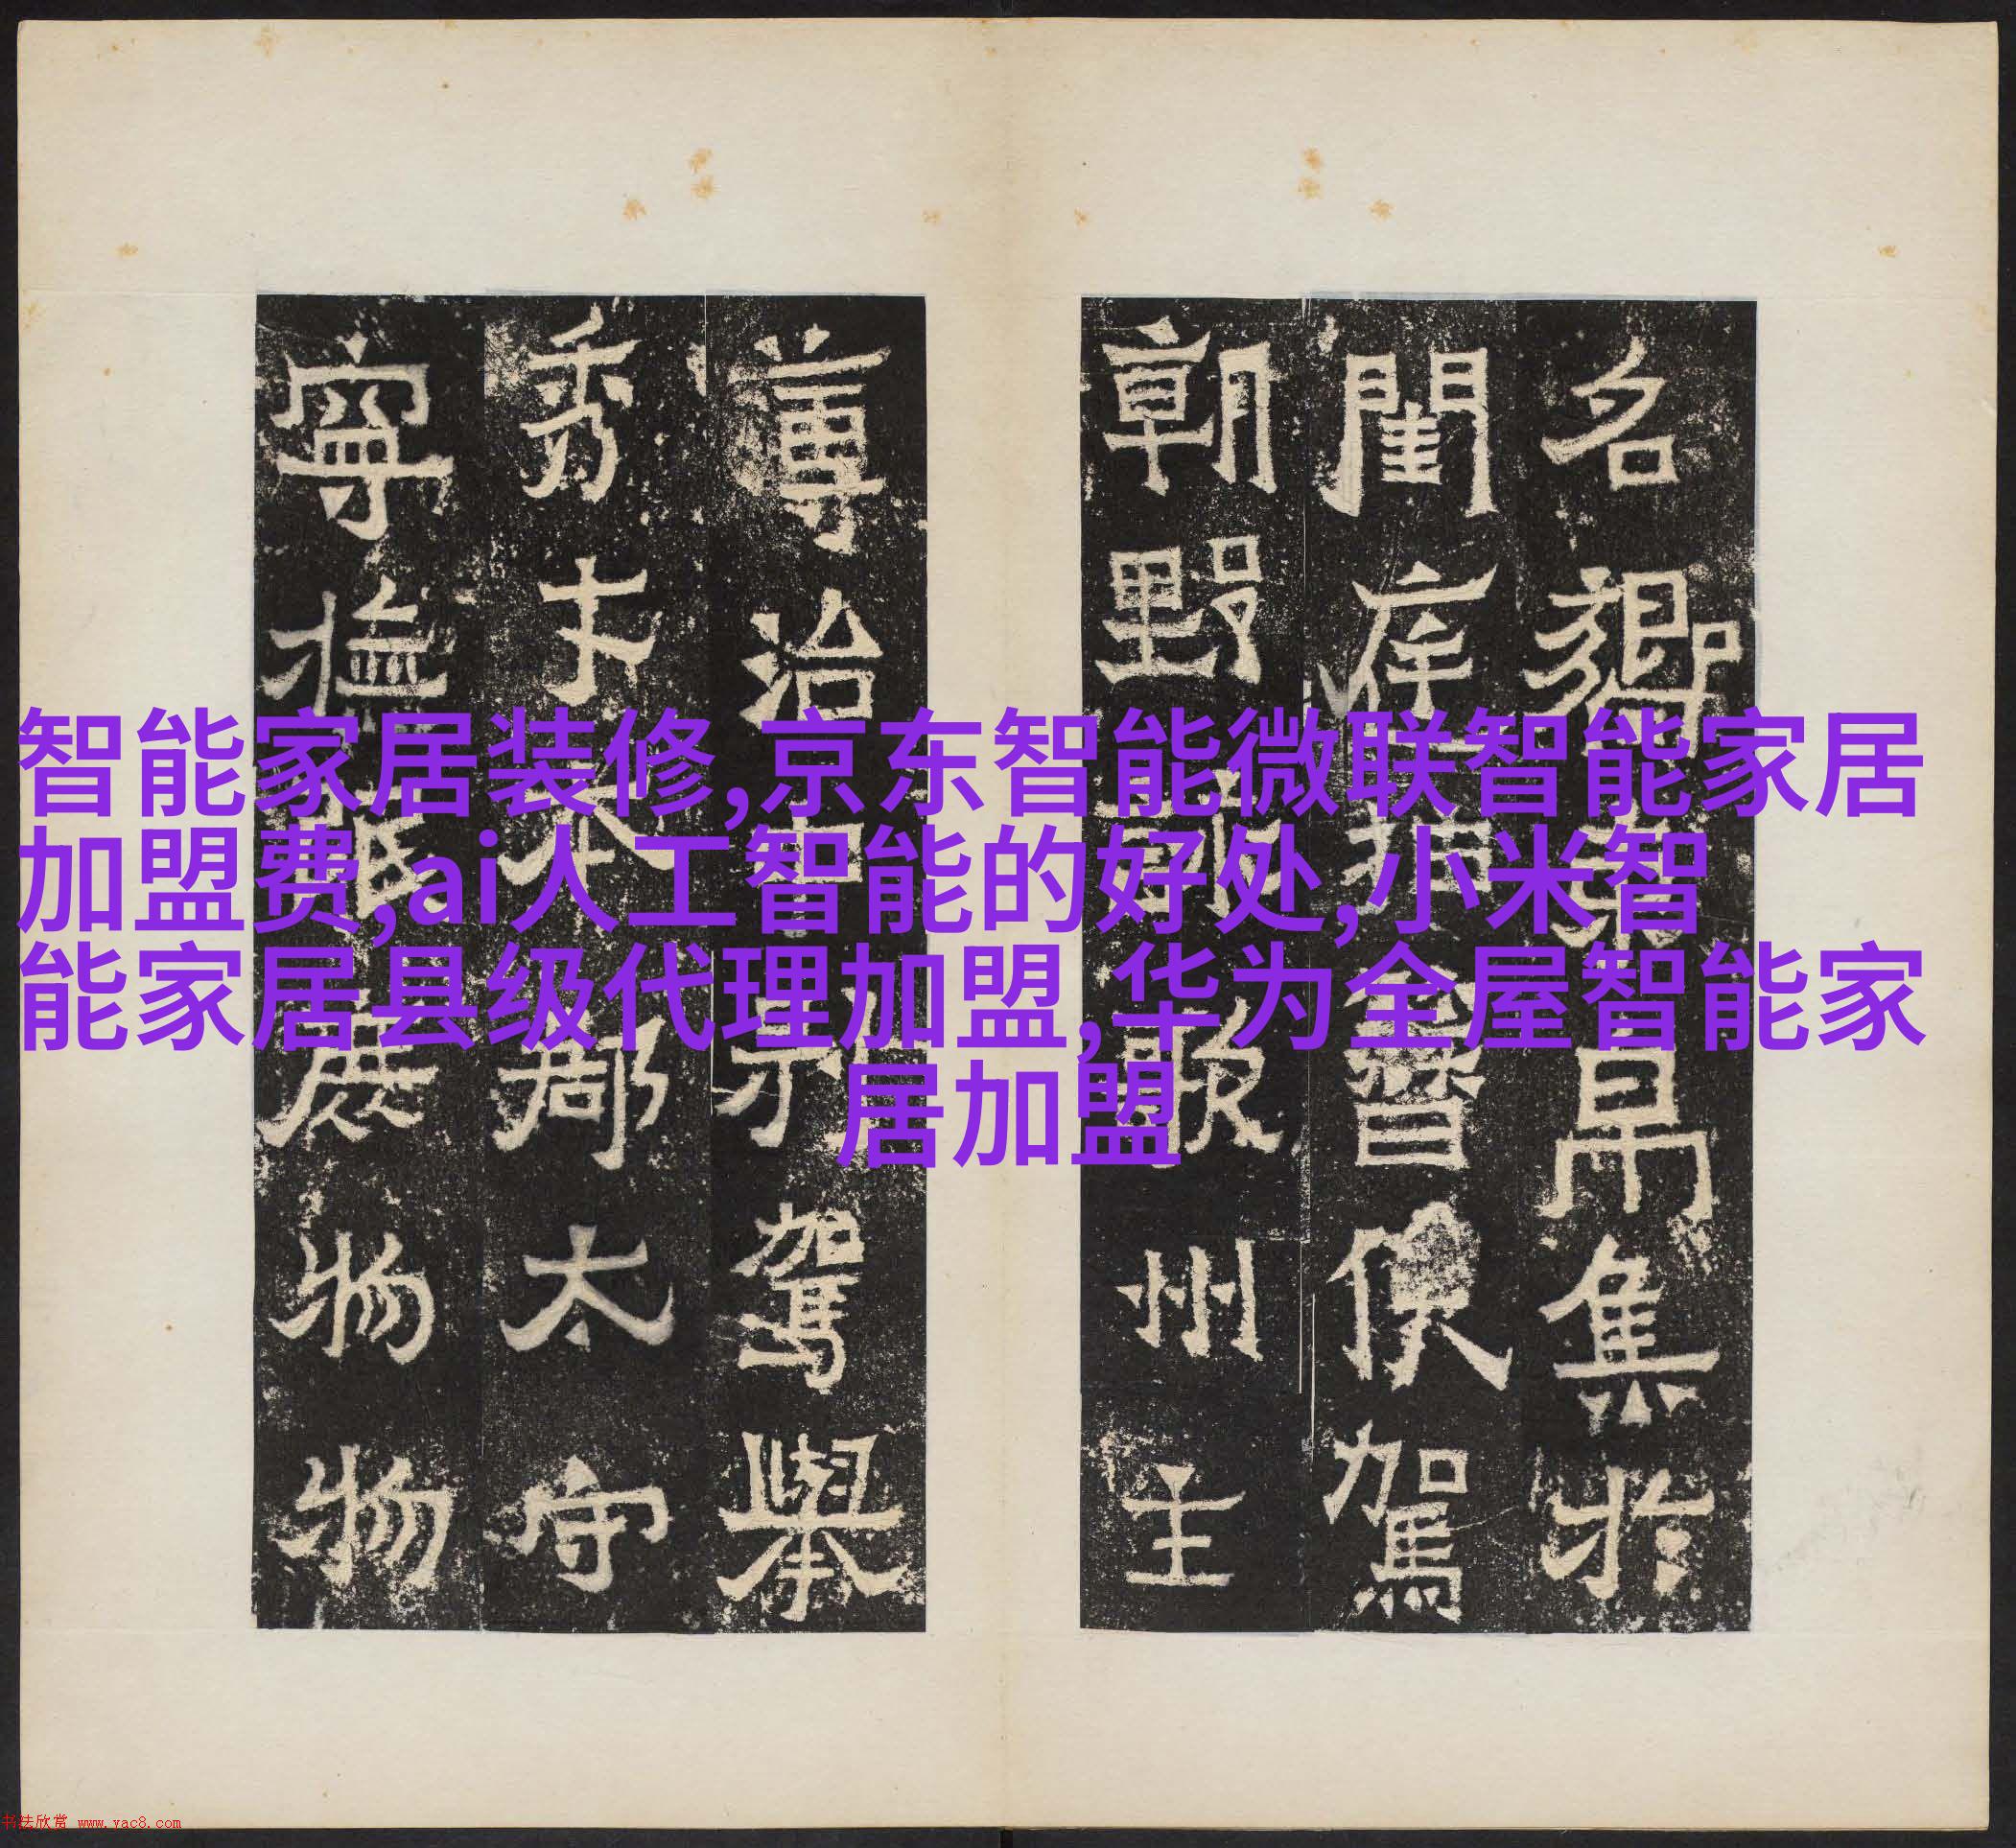 智能家居装修,京东智能微联智能家居
加盟费,ai人工智能的好处,小米智
能家居县级代理加盟,华为全屋智能家
居加盟
名鄉帛集於
閨庭晉侯駕
朝野州主
簿治中別駕舉
秀才本郡太守
寧撫庶物物
书法欣赏 www.yac8.com